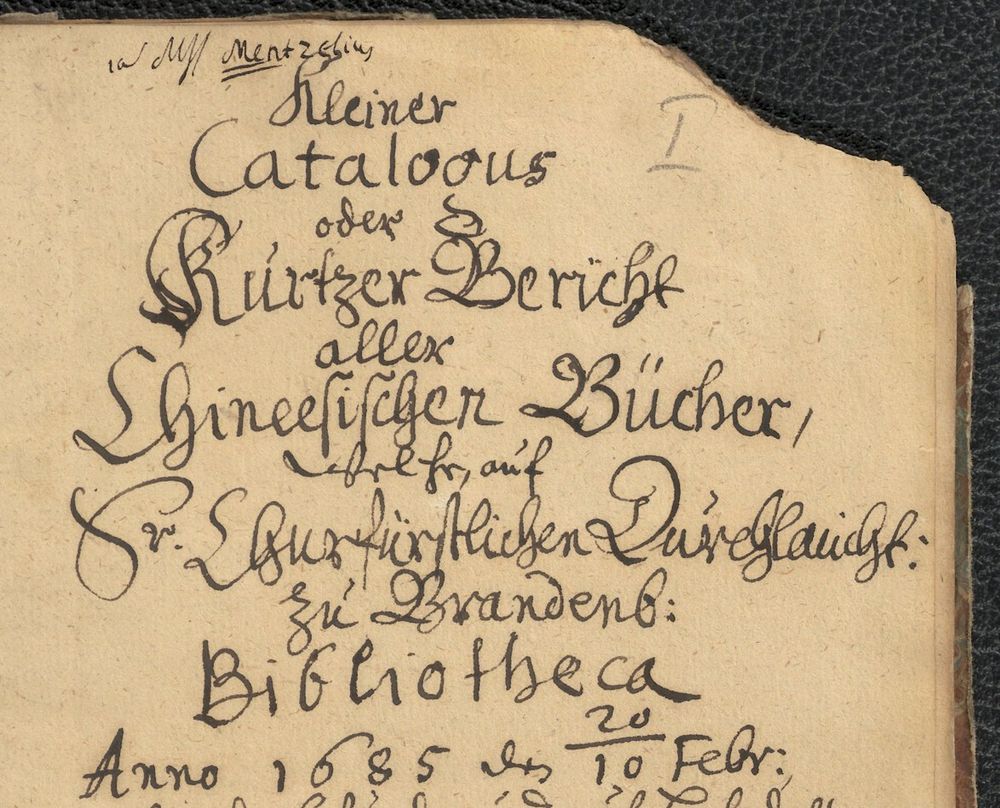 Mentzelius
I
Kleiner
Catalogus
oder
Kurtzer Bericht
aller
Chineesischen Bücher,
welche, auf
Sr. Churfürstlichen Durchlaucht:
zu Brandenb:
Bibliotheca
Anno 1685 den 20/10 Febr: